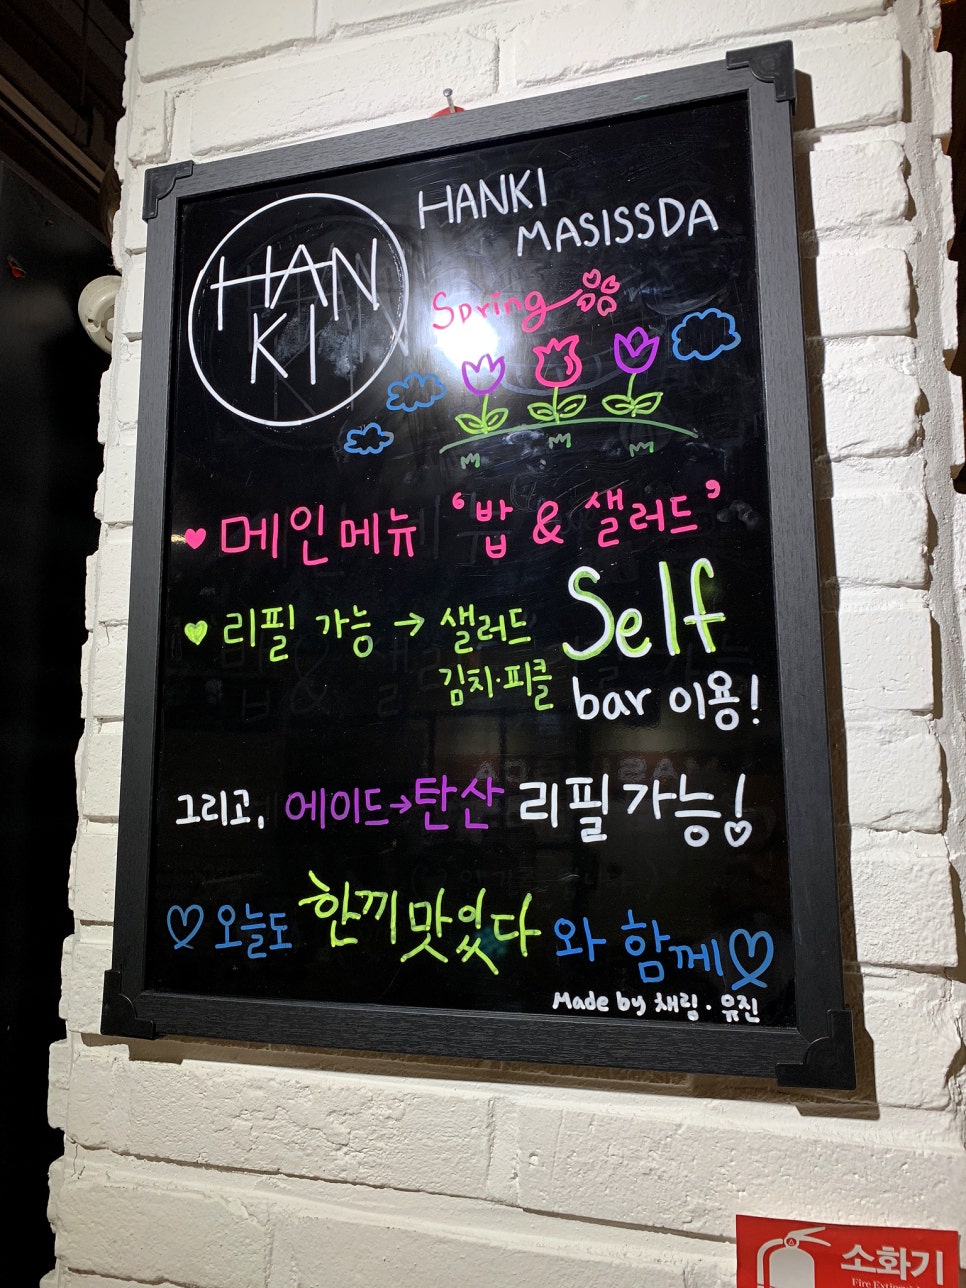 HAN
KI
HANKI
MASISSDA
Spring
♥ 메인메뉴 '밥 & 샐러드'
♥ 리필 가능 → 샐러드
김치·피클
Self
bar 이용!
그리고, 에이드→탄산 리필가능!
♡ 오늘도 한끼맛있다 와 함께♡
Made by 채림·유진
소화기